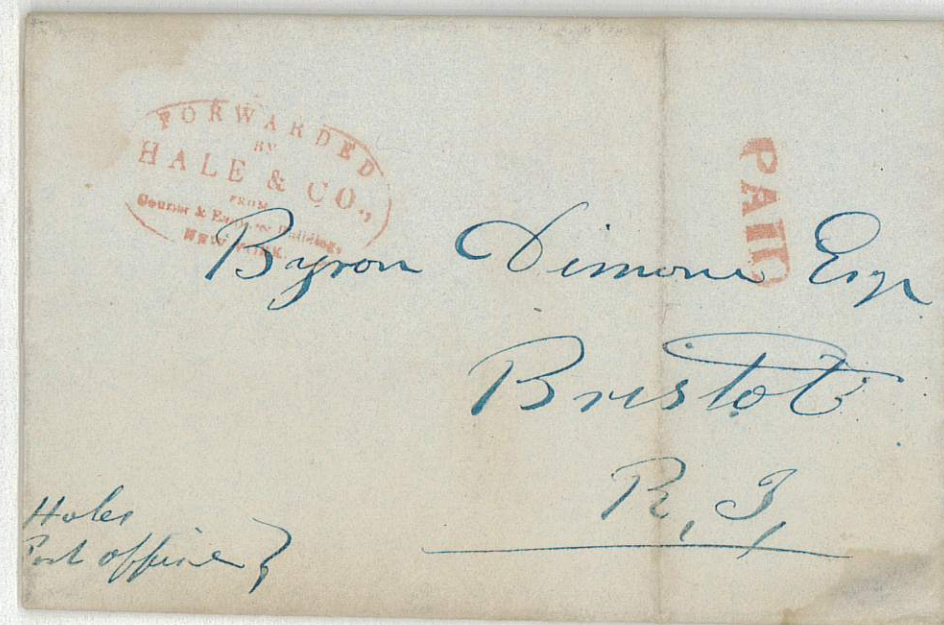 FORWARDED
BY
HALE & CO.,
FROM
Courier & Enquirer Buildings,
NEW YORK.
PAID
Byron Dimond Esqr
Bristol
R, I,
Hales
Post office